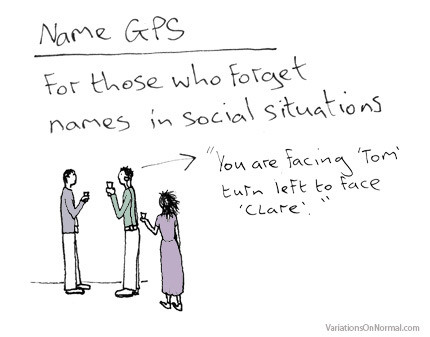 Name GPS
For those who forget
names in social situations
"You are facing 'Tom'
turn left to face
'Clare'."
VariationsOnNormal.com